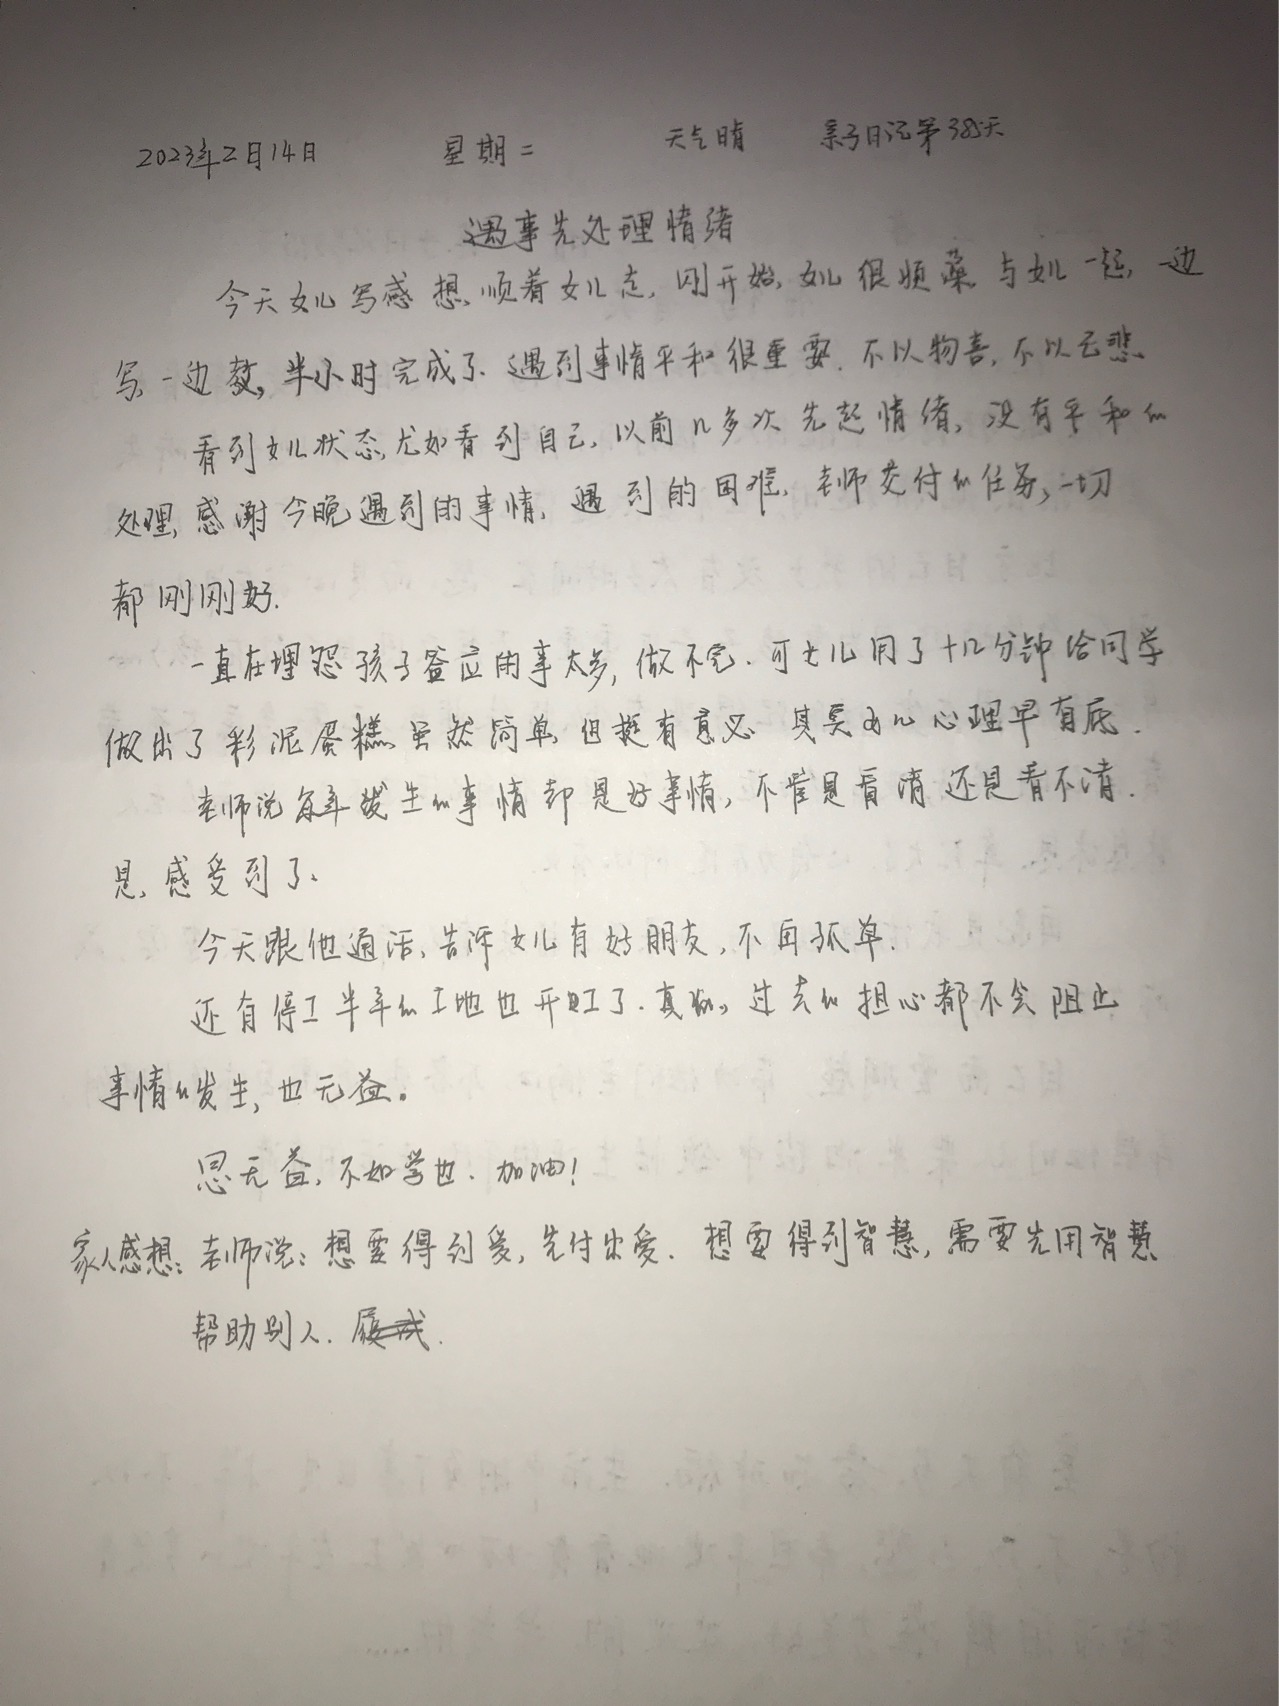 2023年2月14日 星期二 天气晴 亲子日记第385天
遇事先处理情绪
今天女儿写感想,顺着女儿走,刚开始,女儿很烦藻,与女儿一起,一边
写,一边教,半小时完成了.遇到事情平和很重要.不以物喜,不以己悲.
看到女儿状态,尤如看到自己,以前几多次先起情绪,没有平和的
处理,感谢今晚遇到的事情,遇到的困难,老师交付的任务,一切
都刚刚好.
一直在埋怨孩子答应的事太多,做不完.可女儿用了十几分钟给同学
做出了彩泥蛋糕,虽然简单,但挺有意义.其实女儿心理早有底.
老师说每年发生的事情都是好事情,不管是看清还是看不清.
是,感受到了.
今天跟他通话,告诉女儿有好朋友,不再孤单.
还有停工半年的工地也开工了.真的,过去的担心都不会阻止
事情的发生,也无益。
思无益,不如学也.加油!
家人感想:老师说:想要得到爱,先付出爱.想要得到智慧,需要先用智慧
帮助别人.